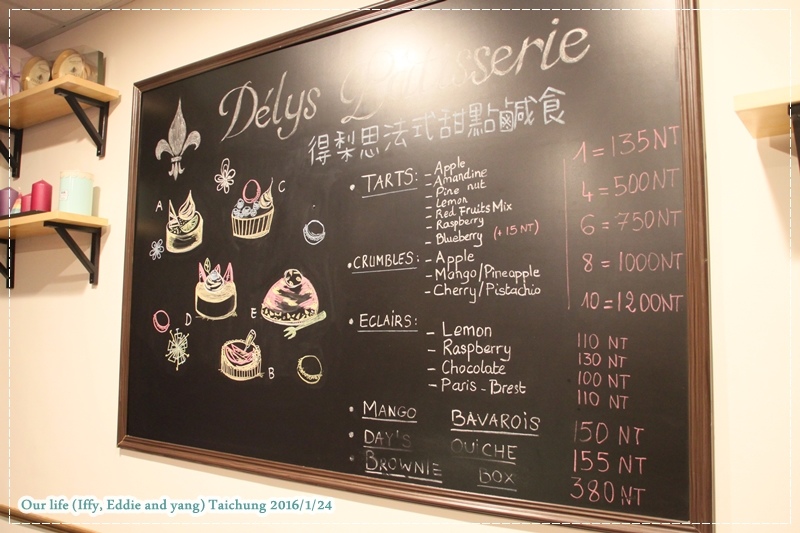 Délys Patisserie
得梨思法式甜點鹹食
A
C
D
E
B
• TARTS:
- Apple
- Amandine
- Pine nut
- Lemon
- Red Fruits Mix
- Raspberry
- Blueberry (+15 NT)
• CRUMBLES:
- Apple
- Mango/Pineapple
- Cherry/Pistachio
1 = 135 NT
4 = 500NT
6 = 750NT
8 = 1000NT
10 = 1200NT
• ECLAIRS:
- Lemon 110 NT
- Raspberry 130 NT
- Chocolate 100 NT
- Paris-Brest 110 NT
• MANGO BAVAROIS 150 NT
• DAY'S QUICHE 155 NT
• BROWNIE BOX 380 NT
Our life (Iffy, Eddie and yang) Taichung 2016/1/24